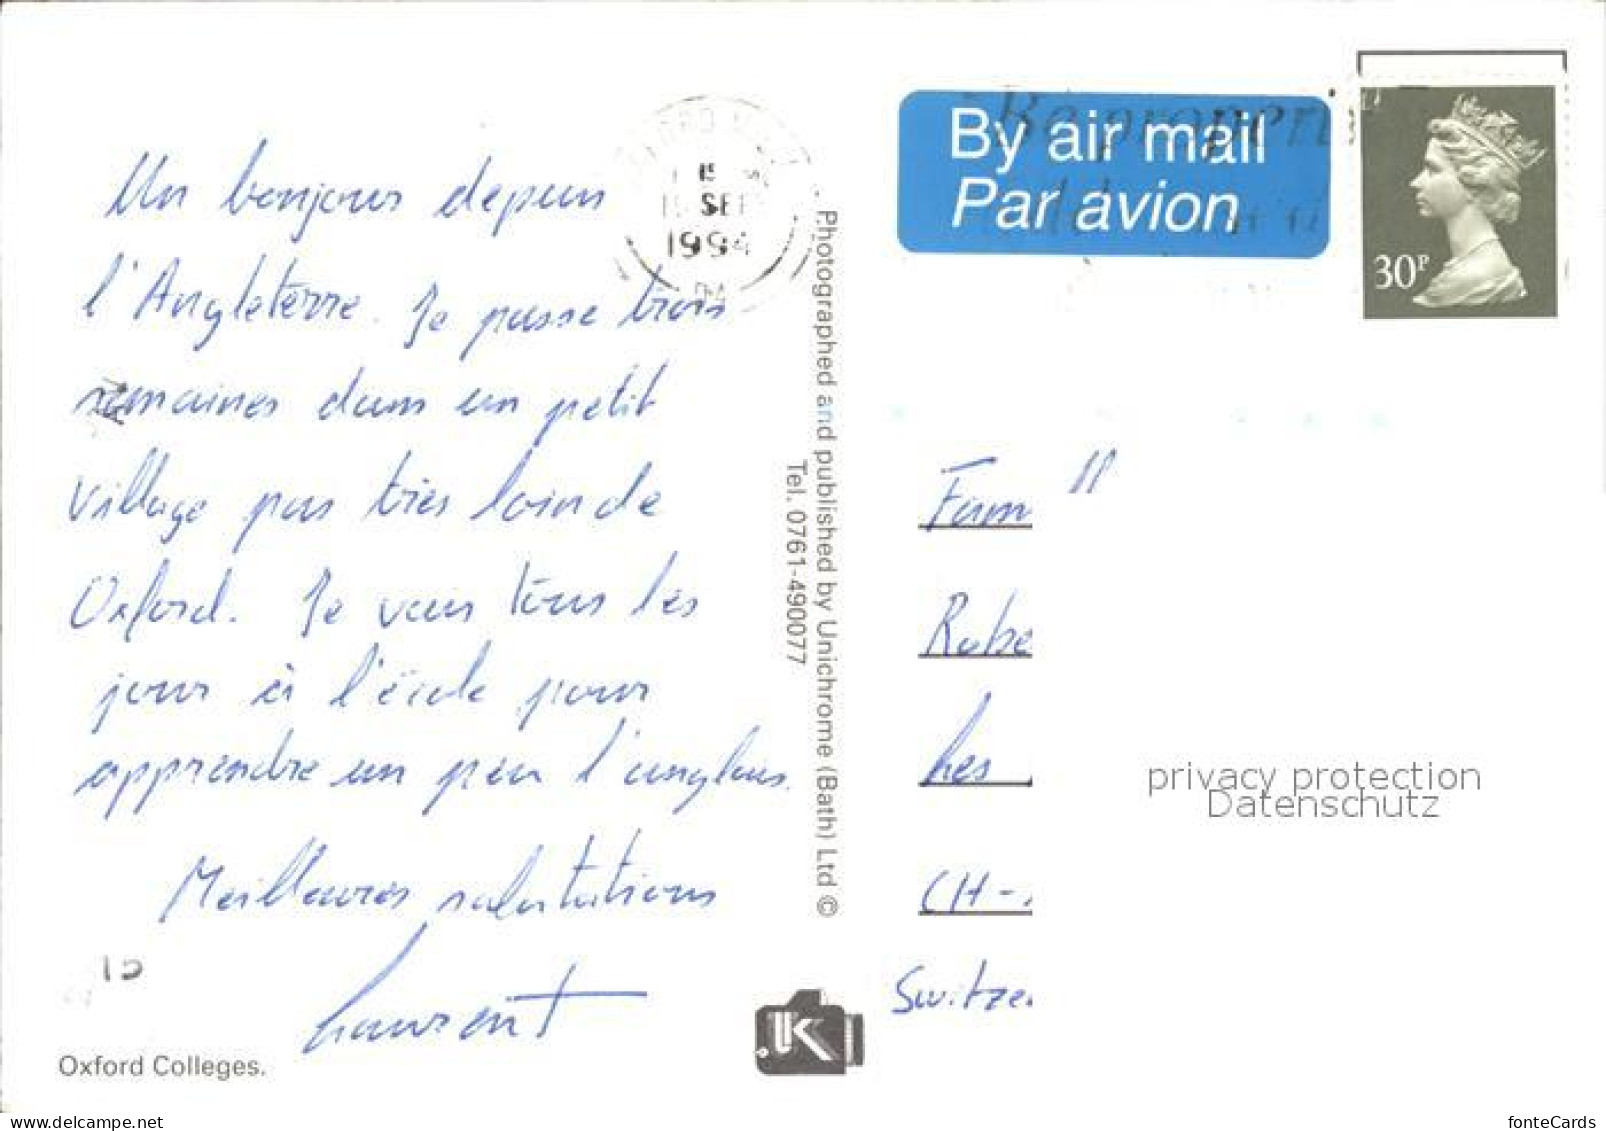 Un bonjour depuis
l'Angleterre. Je passe trois
semaines dans un petit
village pas très loin de
Oxford. Je vais tous les
jour à l'école pour
apprendre un peu l'anglais.
Meilleures salutations
Laurent
Oxford Colleges.
15 SEP
1994
Photographed and published by Unichrome (Bath) Ltd ©
Tel. 0761-490077
By air mail
Par avion
Be properly
30P
Fam
Robe
Les
CH-
Switze
privacy protection
Datenschutz
www.delcampe.net
fonteCards